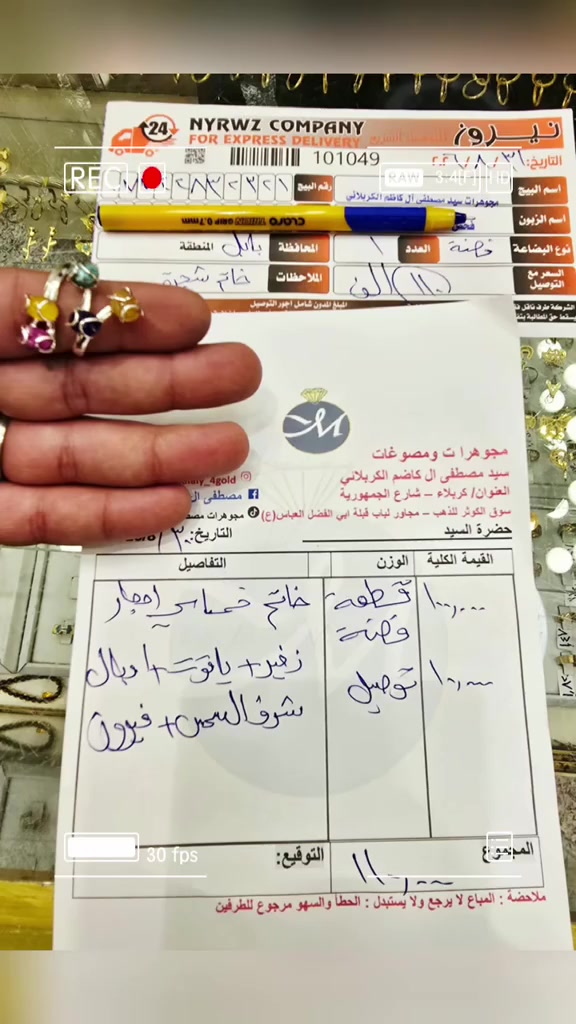 24
NYRWZ COMPANY
FOR EXPRESS DELIVERY
نيروز
101049
التاريخ:
REC
RAW
HD
اسم البيج
مجوهرات سيد مصطفى ال كاظم الكربلائي
رقم البيج
اسم الزبون
CLARO
GRIP 0.7mm
نوع البضاعة
فضة
العدد
١
المحافظة
بابل
المنطقة
السعر مع التوصيل
(١١٠) الف
الملاحظات
خاتم
المبلغ المدون شامل أجور التوصيل
M
مجوهرات ومصوغات
سيد مصطفى ال كاضم الكربلائي
العنوان/ كربلاء – شارع الجمهورية
سوق الكوثر للذهب – مجاور لباب قبلة ابي الفضل العباس(ع)
_4gold
مصطفى
مجوهرات
التاريخ:
حضرة السيد
القيمة الكلية
الوزن
التفاصيل
١٠٠,٠٠٠
قطعة فضة
خاتم خماسي احجار
زفير + ياقوت + اوبال
١٠,٠٠٠
توصيل
شرف الشمس + فيروز
المجموع
١١٠,٠٠٠
التوقيع:
30 fps
ملاحضة : المباع لا يرجع ولا يستبدل : الخطأ والسهو مرجوع للطرفين